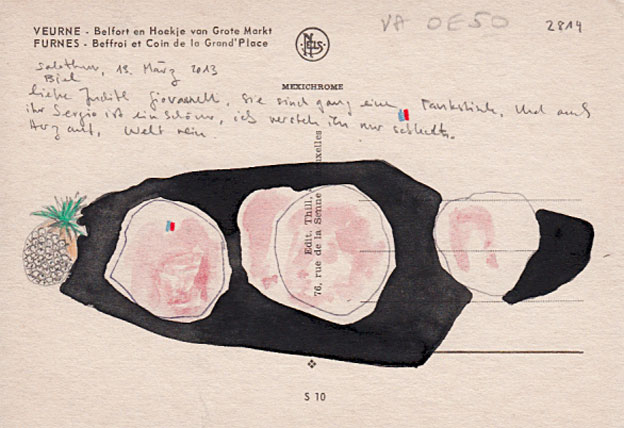 VEURNE - Belfort en Hoekje van Grote Markt
FURNES - Beffroi et Coin de la Grand'Place
VA OE50
2814
NELS
MEXICHROME
Solothurn, 13. März 2013
Biel
Liebe Judith Giovannelli, Sie sind ganz eine Und auch
ihr Sergio ist ein schöner, ich verstehe ihn nur schlecht.
Herz auf, Welt rein
Edit. Thill,
76, rue de la Senne
uxelles
S 10